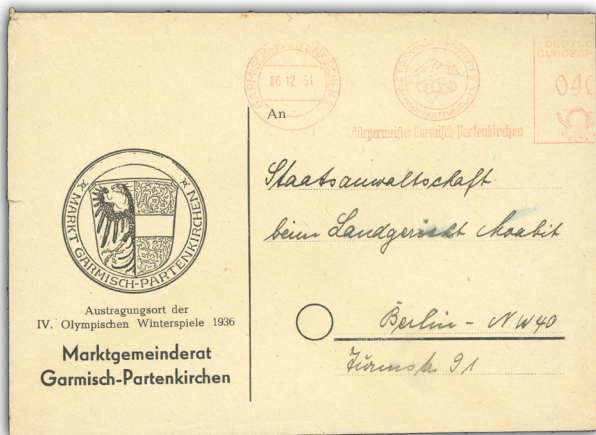 GARMISCH-PARTENKIRCHEN
06 12 51
DEUTSCHE
BUNDESPOST
040
Bürgermeister Garmisch-Partenkirchen
An
Staatsanwaltschaft
beim Landgericht Moabit
Berlin - NW40
Turmstr. 91
MARKT GARMISCH-PARTENKIRCHEN
Austragungsort der
IV. Olympischen Winterspiele 1936
Marktgemeinderat
Garmisch-Partenkirchen